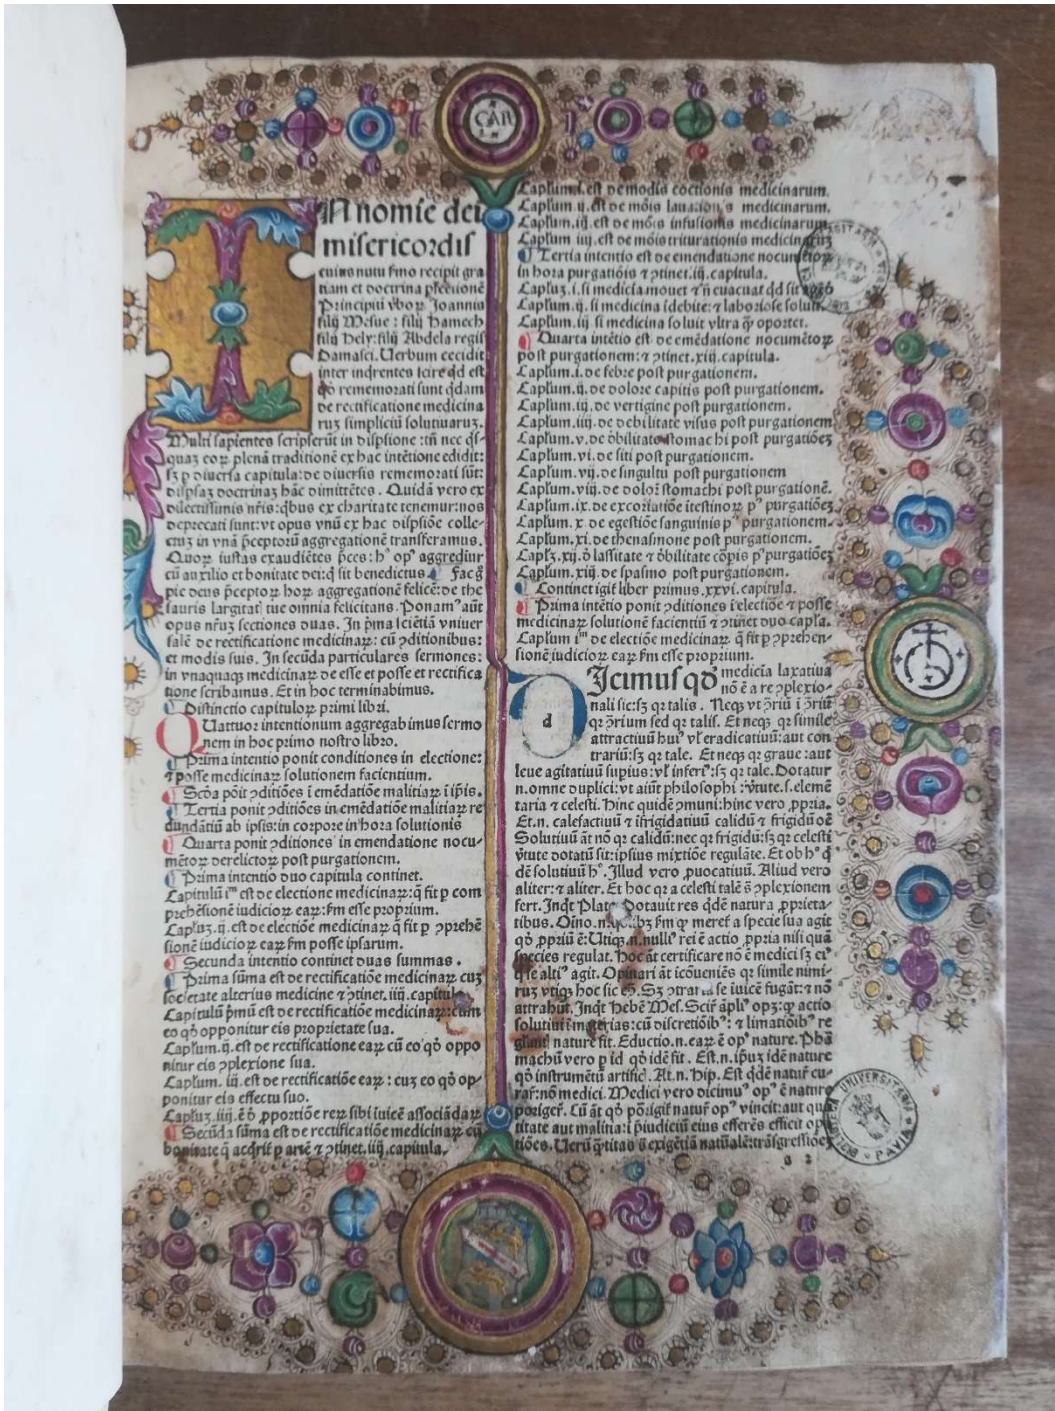 CAR
IN nomīe dei
misericordis
cuius nutu ſmo recipit gra
tiam et doctrina pfectionē
Principiū v̄boꝝ Joannis
filij Mesue: filij Hamech
filij Hely: filij Abdela regis
Damasci. Uerbum cecidit
inter indꝛentes scire qd est
qȯ rememorati sunt qdam
de rectificatione medicina
ruʒ simpliciū solutiuaruʒ.
Multi sapientes scripserūt in dispsione: tn̄ nec qs-
quaʒ eoꝝ plenā traditionē ex hac intētione edidit:
sʒ p diuersa capitula: de diuersis rememorati sūt:
dispsaʒ doctrinaʒ hāc dimittētes. Quidā vero ex
dilectissimis nr̄is: qbus ex charitate tenemur: nos
deprecati sunt: vt opus vnū ex hac dispsiōe colle-
ctuʒ in vnā p̄ceptorū aggregationē transferamus.
Quoꝝ iustas exaudiētes p̄ces: hᵒ opꝰ aggrediur
cū auxilio et bonitate dei: q̄ sit benedictus. Facq̄
pie deus p̄ceptoꝝ hoꝝ aggregationē felicē: de the
sauris largitatꝭ tue omnia felicitans. Ponamꝰ aūt
opus nr̄uʒ sectiones duas. In p̄ma sciētiā vniuer
salē de rectificatione medicinaꝝ: cū ꝯditionibus:
et modis suis. In secūda particulares sermones:
in vnaquaqʒ medicinaꝝ de esse et posse et rectifica
tione scribamus. Et in hoc terminabimus.
Distinctio capituloꝝ primi libri.
QUattuoꝛ intentionum aggregabimus sermo
nem in hoc primo nostro libꝛo.
Prima intentio ponit conditiones in electione:
⁊ posse medicinaꝝ solutionem facientium.
Scȏa pōit ꝯditiōes ī emēdatiōe malitiaꝝ ī ip̄is.
Tertia ponit ꝯditiōes in emēdatiōe malitiaꝝ re
dundātiū ab ipsis: in coꝛpoꝛe in hoꝛa solutionis
Quarta ponit ꝯditiones in emendatione nocu-
mētoꝝ derelictoꝝ post purgationem.
Prima intentio duo capitula continet.
Capitulū iᵐ est de electione medicinaꝝ: q̄ fit p com
pꝛehēsionē iudicioꝝ eaꝝ: fm esse pꝛopꝛium.
Capl'uʒ. ij. est de electiōe medicinaꝝ q̄ fit p ꝯpꝛehē
sionē iudicioꝝ eaꝝ fm posse ipsarum.
Secunda intentio continet duas summas.
Prima sūma est de rectificatiōe medicinaꝝ cuʒ
societate alterius medicine ⁊ ꝯtinet. iiij. capitula
Capitulū p̄mū est de rectificatiōe medicinaꝝ: cum
eo qȯ opponitur eis pꝛopꝛietate sua.
Capl'um. ij. est de rectificatione eaꝝ cū eo qȯ oppo
nitur eis ꝯplexione sua.
Capl'um. iij. est de rectificatiōe eaꝝ: cuʒ eo qȯ op-
ponitur eis effectu suo.
Capl'uʒ. iiij. ē ȯ ꝓpoꝛtiōe reꝝ sibi īuicē associādaꝝ
Secūda sūma est de rectificatiōe medicinaꝝ cū
bonitate q̄ acqrit̄ p artē ⁊ ꝯtinet. iiij. capitula.
Capl'um. i. est de modis coctionis medicinarum.
Capl'um. ij. est de mōis lauationis medicinarum.
Capl'um. iij. est de mōis infusionis medicinarum
Capl'um iiij. est de mōis triturationis medicinaruʒ
Tertia intentio est de emendatione nocumētoꝝ
in hoꝛa purgatiōis ⁊ ꝯtinet. iij. capitula.
Capl'uʒ. i. si medicīa mouet ⁊ n̄ euacuat qd sit
Capl'um. ij. si medicina īdebite: ⁊ laboꝛiose
Capl'um. iij si medicina soluit vltra q̄ opoꝛtet.
Quarta intētio est de emēdatione nocumētoꝝ
post purgationem: ⁊ ꝯtinet. xiij. capitula.
Capl'um. i. de febꝛe post purgationem.
Capl'um. ij. de doloꝛe capitis post purgationem.
Capl'um. iij. de vertigine post purgationem.
Capl'um. iiij. de debilitate visus post purgationem
Capl'um. v. de ȯbilitate stomachi post purgatiōeʒ
Capl'um. vi. de siti post purgationem.
Capl'um. vij. de singultu post purgationem
Capl'um. viij. de doloꝛe stomachi post purgationē.
Capl'um. ix. de excoꝛiatiōe ītestinoꝝ pꝰ purgatiōeʒ
Capl'um. x. de egestiōe sanguinis pꝰ purgationem.
Capl'um. xi. de thenasmone post purgationem.
Capl'ʒ. xij. ȯ lassitate ⁊ ȯbilitate coꝛpis pꝰ purgatiōeʒ
Capl'um. xiij. de spasmo post purgationem.
Continet igit̄ liber primus. xxvi. capitula.
Prima intētio ponit ꝯditiones ī electiōe ⁊ posse
medicinaꝝ solutionē facientiū ⁊ ꝯtinet duo capl'a.
Capl'um iᵐ de electiōe medicinaꝝ q̄ fit p ꝯpꝛehen-
sionē iudicioꝝ eaꝝ fm esse pꝛopꝛium.
d
DIcimus qȯ medicīa laxatiua
nō ē a re ꝯplexio-
nali sic: sʒ qꝛ talis. Neqʒ vt ꝯ̄riū ī ꝯ̄riū
qꝛ ꝯ̄rium sed qꝛ talis. Et neqʒ qꝛ simile
attractiuū huiꝰ vl' eradicatiuū: aut con
trariū: sʒ qꝛ tale. Et neqʒ qꝛ graue: aut
leue agitatiuū supius: vl' inferiꝰ: sʒ qꝛ tale. Dotatur
n. omne duplici: vt aiūt philosophi: v̄tute. s. elemē
taria ⁊ celesti. Hinc quidē ꝯmuni: hinc vero ꝓpꝛia.
Et. n. calefactiuū ⁊ īfrigidatiuū calidū ⁊ frigidū oē
Solutiuū āt nō qꝛ calidū: nec qꝛ frigidū: sʒ qꝛ celesti
v̄tute dotatū sit: ipsius mixtiōe regulāte. Et ob hᵒ q̄
dē solutiuū hᵒ. Illud vero ꝓuocatiuū. Aliud vero
aliter: ⁊ aliter. Et hoc qꝛ a celesti talē s̄ ꝯplexionem
fert. Inqt Plato Dotauit res qdē natura ꝓprieta-
tibus.
qȯ ꝓpriū ē: Utiqʒ. n. nullꝰ rei ē actio ꝓpꝛia nisi quā
species regulat. Hoc āt certificare nō ē medici sʒ eiꝰ
q̄ se altiꝰ agit. Opinari āt īcōueniēs qꝛ simile nimi-
ruʒ vtiqʒ hoc sic
attrahūt. Inqt Hebē Mes.
solutiui
nature fit. Eductio. n. eaꝝ ē opꝰ nature.
machū vero p id qȯ idē fit. Est. n. ip̄uʒ idē nature
qȯ instrumētū artifici. At. n. Hip. Est qdē natur̄ cu-
rar̄: nō medici. Medici vero dicimuꝰ opꝰ ē nature
BIBLIOTECA UNIVERSITARIA PAVIA
a 2